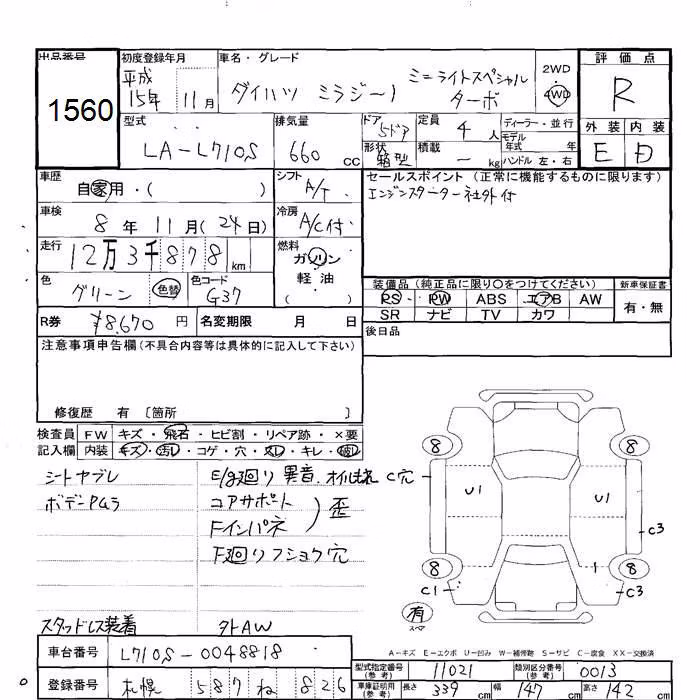 出品番号 初度登録年月 車名・グレード 評価点
1560 平成 15年 11月 ダイハツ ミラジーノ ミニライトスペシャル ターボ 2WD 4WD R
型式 排気量 ドア 5ドア 定員 4人 ディーラー・並行 外装 内装
LA-L710S 660cc 形状 箱型 積載 ーkg モデル年式 年 ハンドル 左・右 E D
車歴 自家用・( ) シフト A/T セールスポイント (正常に機能するものに限ります)
車検 8年 11月 (24日) 冷房 A/C付 エンジンスターター社外付
走行 12万3千878km 燃料 ガソリン 軽油 ( )
色 グリーン 色替 色コード G37 装備品 (純正品に限り○をつけてください) 新車保証書
PS・PW ABS エアB AW 有・無
SR ナビ TV カワ
R券 ¥8,670円 名変期限 月 日 後日品
注意事項申告欄(不具合内容等は具体的に記入して下さい)
修復歴 有 〔箇所 〕
検査員 FW キズ・飛石・ヒビ割・リペア跡・×要
記入欄 内装 キズ・汚レ・コゲ・穴・スレ・キレ・破レ
シートヤブレ E/g廻り異音、オイルもれ C穴
ボデーPムラ コアサポート
Fインパネ 歪
F廻りフショク穴
8 8
U1 U1
C3
8 8
C1 C3
有 スペア
スタッドレス装着 外AW
A-キズ E-エクボ U-凹み W-補修跡 S-サビ C-腐食 XX-交換済
車台番号 L710S-0048818 型式指定番号(参考) 11021 類別区分番号(参考) 0013
登録番号 札幌 587 ね 826 車庫証明用(参考) 長さ 339cm 幅 147cm 高さ 142cm